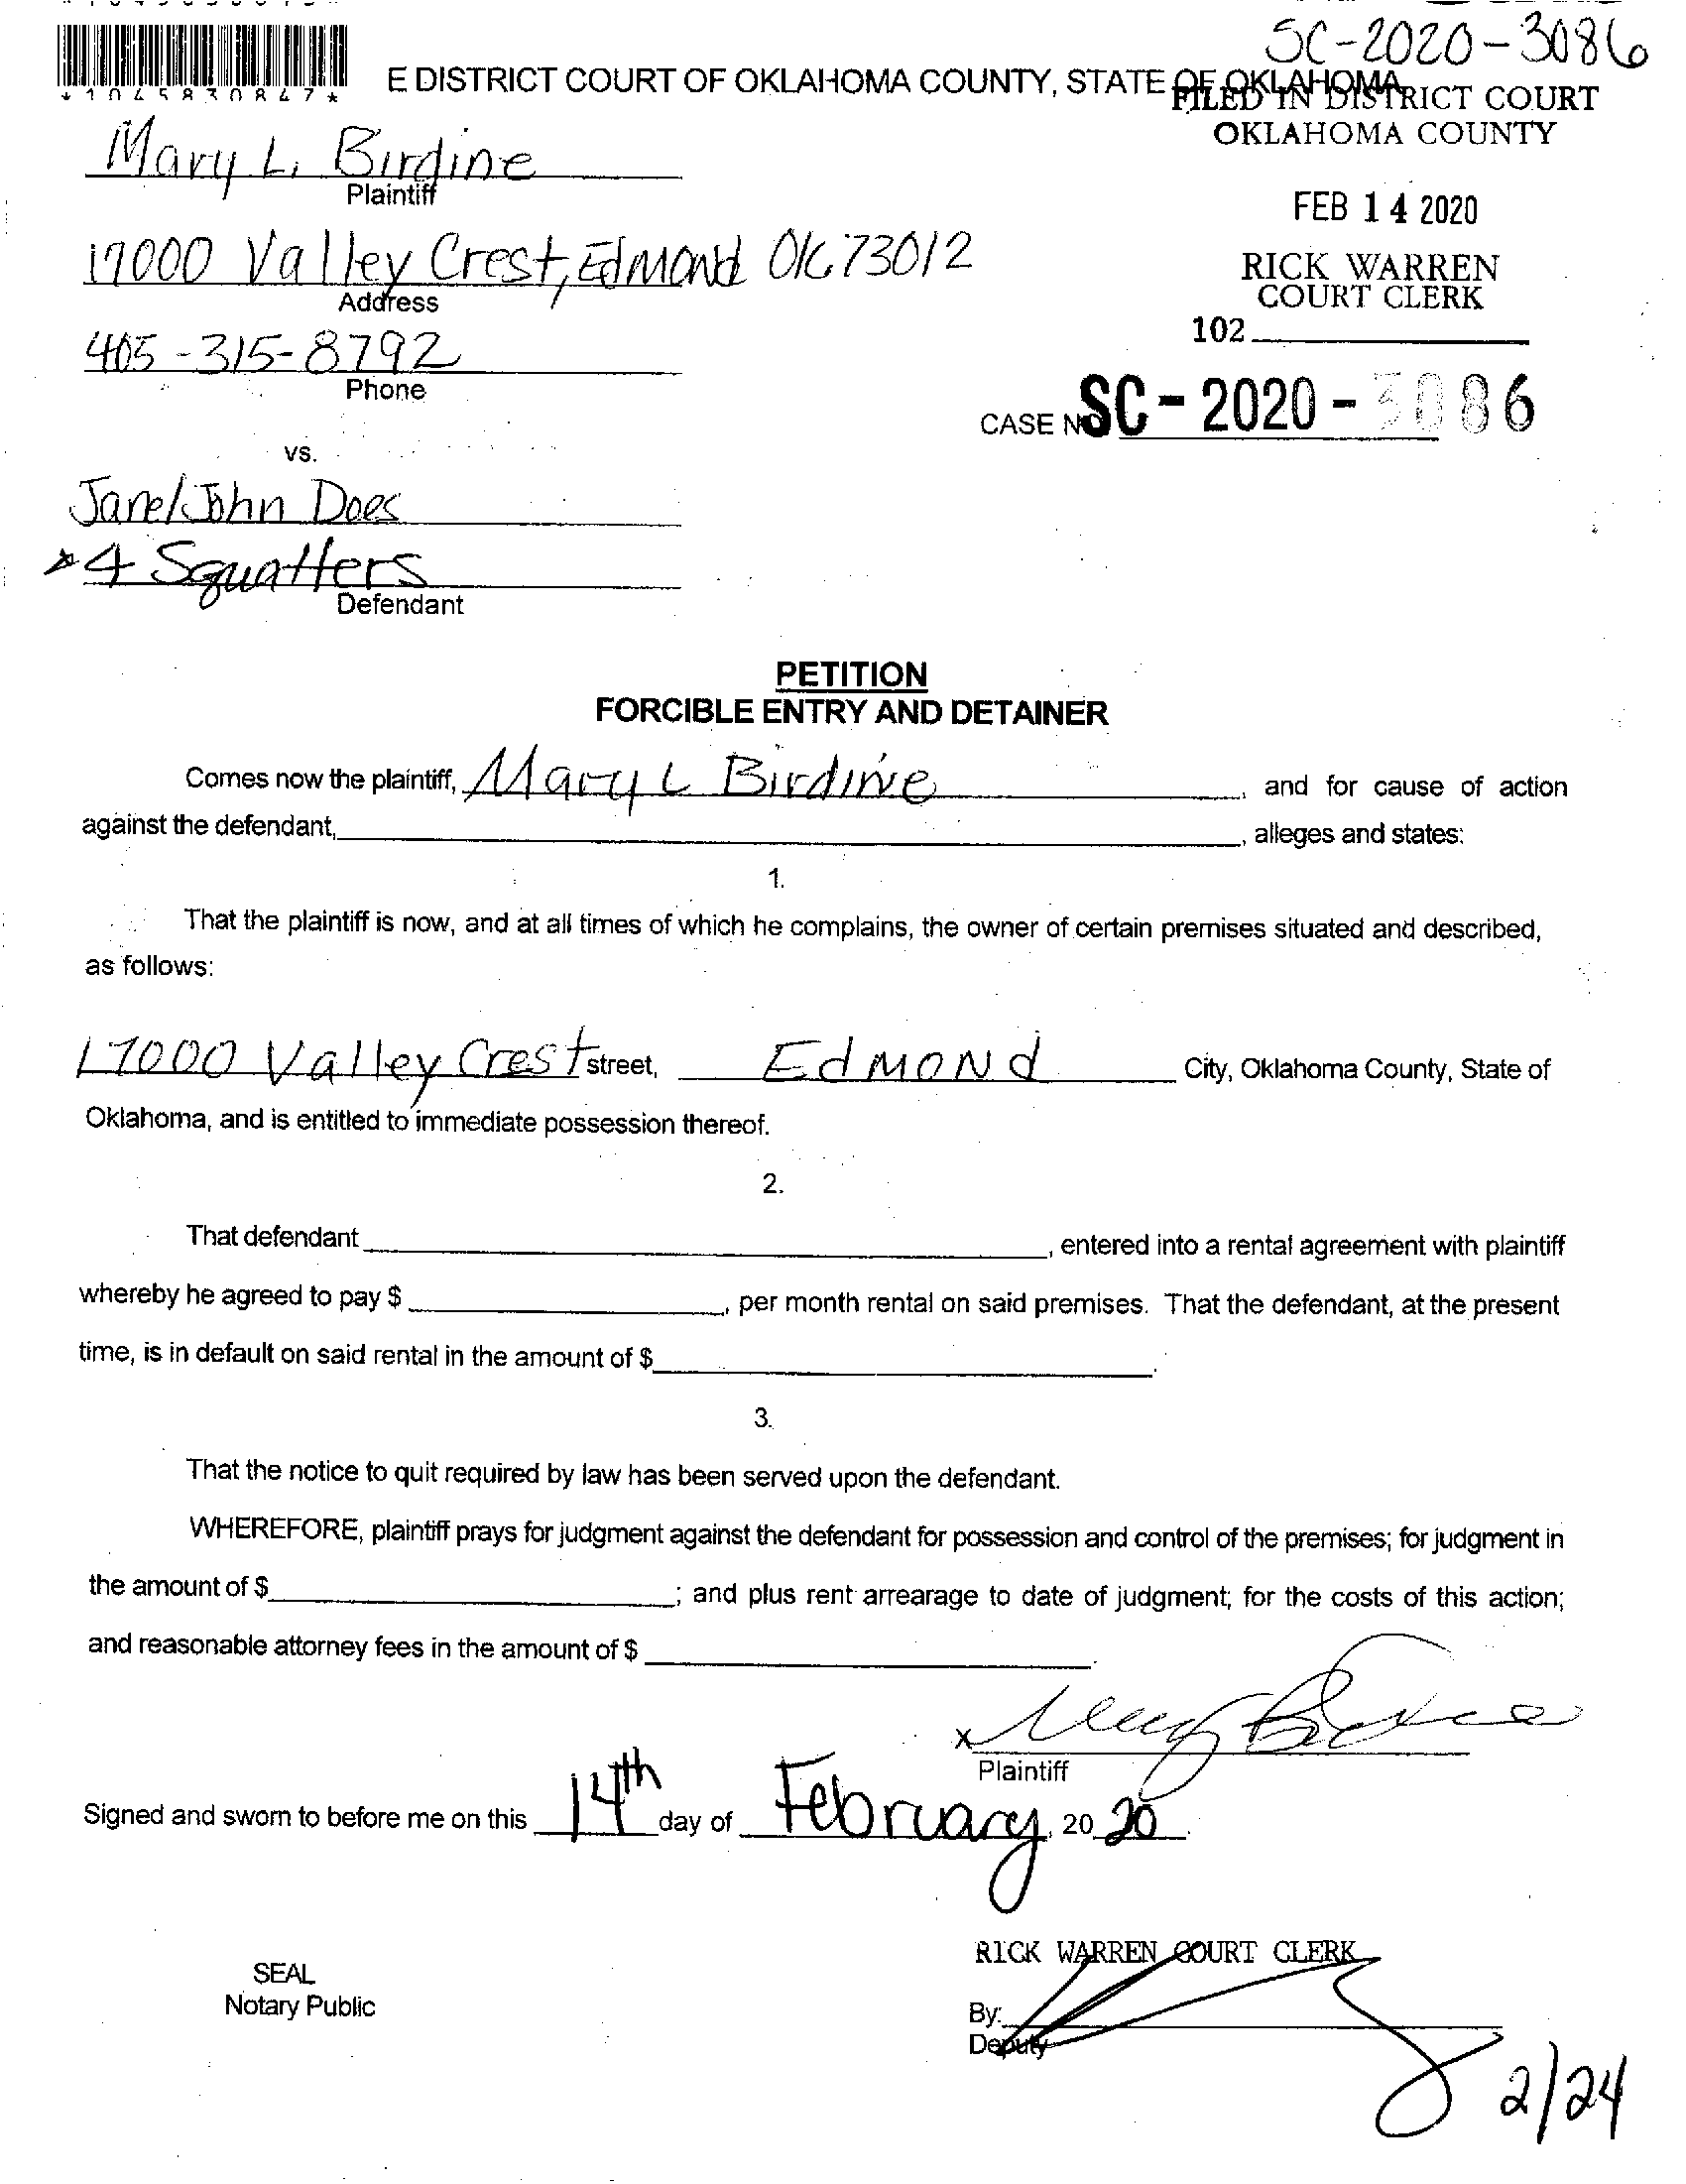 SC-2020-3086
*1045830847*
E DISTRICT COURT OF OKLAHOMA COUNTY, STATE OF OKLAHOMA
FILED IN DISTRICT COURT
OKLAHOMA COUNTY
Mary L. Birdine
Plaintiff
FEB 14 2020
17000 Valley Crest, Edmond OK 73012
Address
RICK WARREN
COURT CLERK
405-315-8792
Phone
102
CASE NO. SC-2020-3086
vs.
Jane/John Does
*4 Squatters
Defendant
PETITION
FORCIBLE ENTRY AND DETAINER
Comes now the plaintiff, Mary L Birdine, and for cause of action
against the defendant, , alleges and states:
1.
That the plaintiff is now, and at all times of which he complains, the owner of certain premises situated and described,
as follows:
17000 Valley Crest street, Edmond City, Oklahoma County, State of
Oklahoma, and is entitled to immediate possession thereof.
2.
That defendant , entered into a rental agreement with plaintiff
whereby he agreed to pay $ , per month rental on said premises. That the defendant, at the present
time, is in default on said rental in the amount of $ .
3.
That the notice to quit required by law has been served upon the defendant.
WHEREFORE, plaintiff prays for judgment against the defendant for possession and control of the premises; for judgment in
the amount of $ ; and plus rent arrearage to date of judgment; for the costs of this action;
and reasonable attorney fees in the amount of $ .
x Mary Birdine
Plaintiff
Signed and sworn to before me on this 14th day of February, 2020.
SEAL
Notary Public
RICK WARREN COURT CLERK
By:
Deputy
2/24